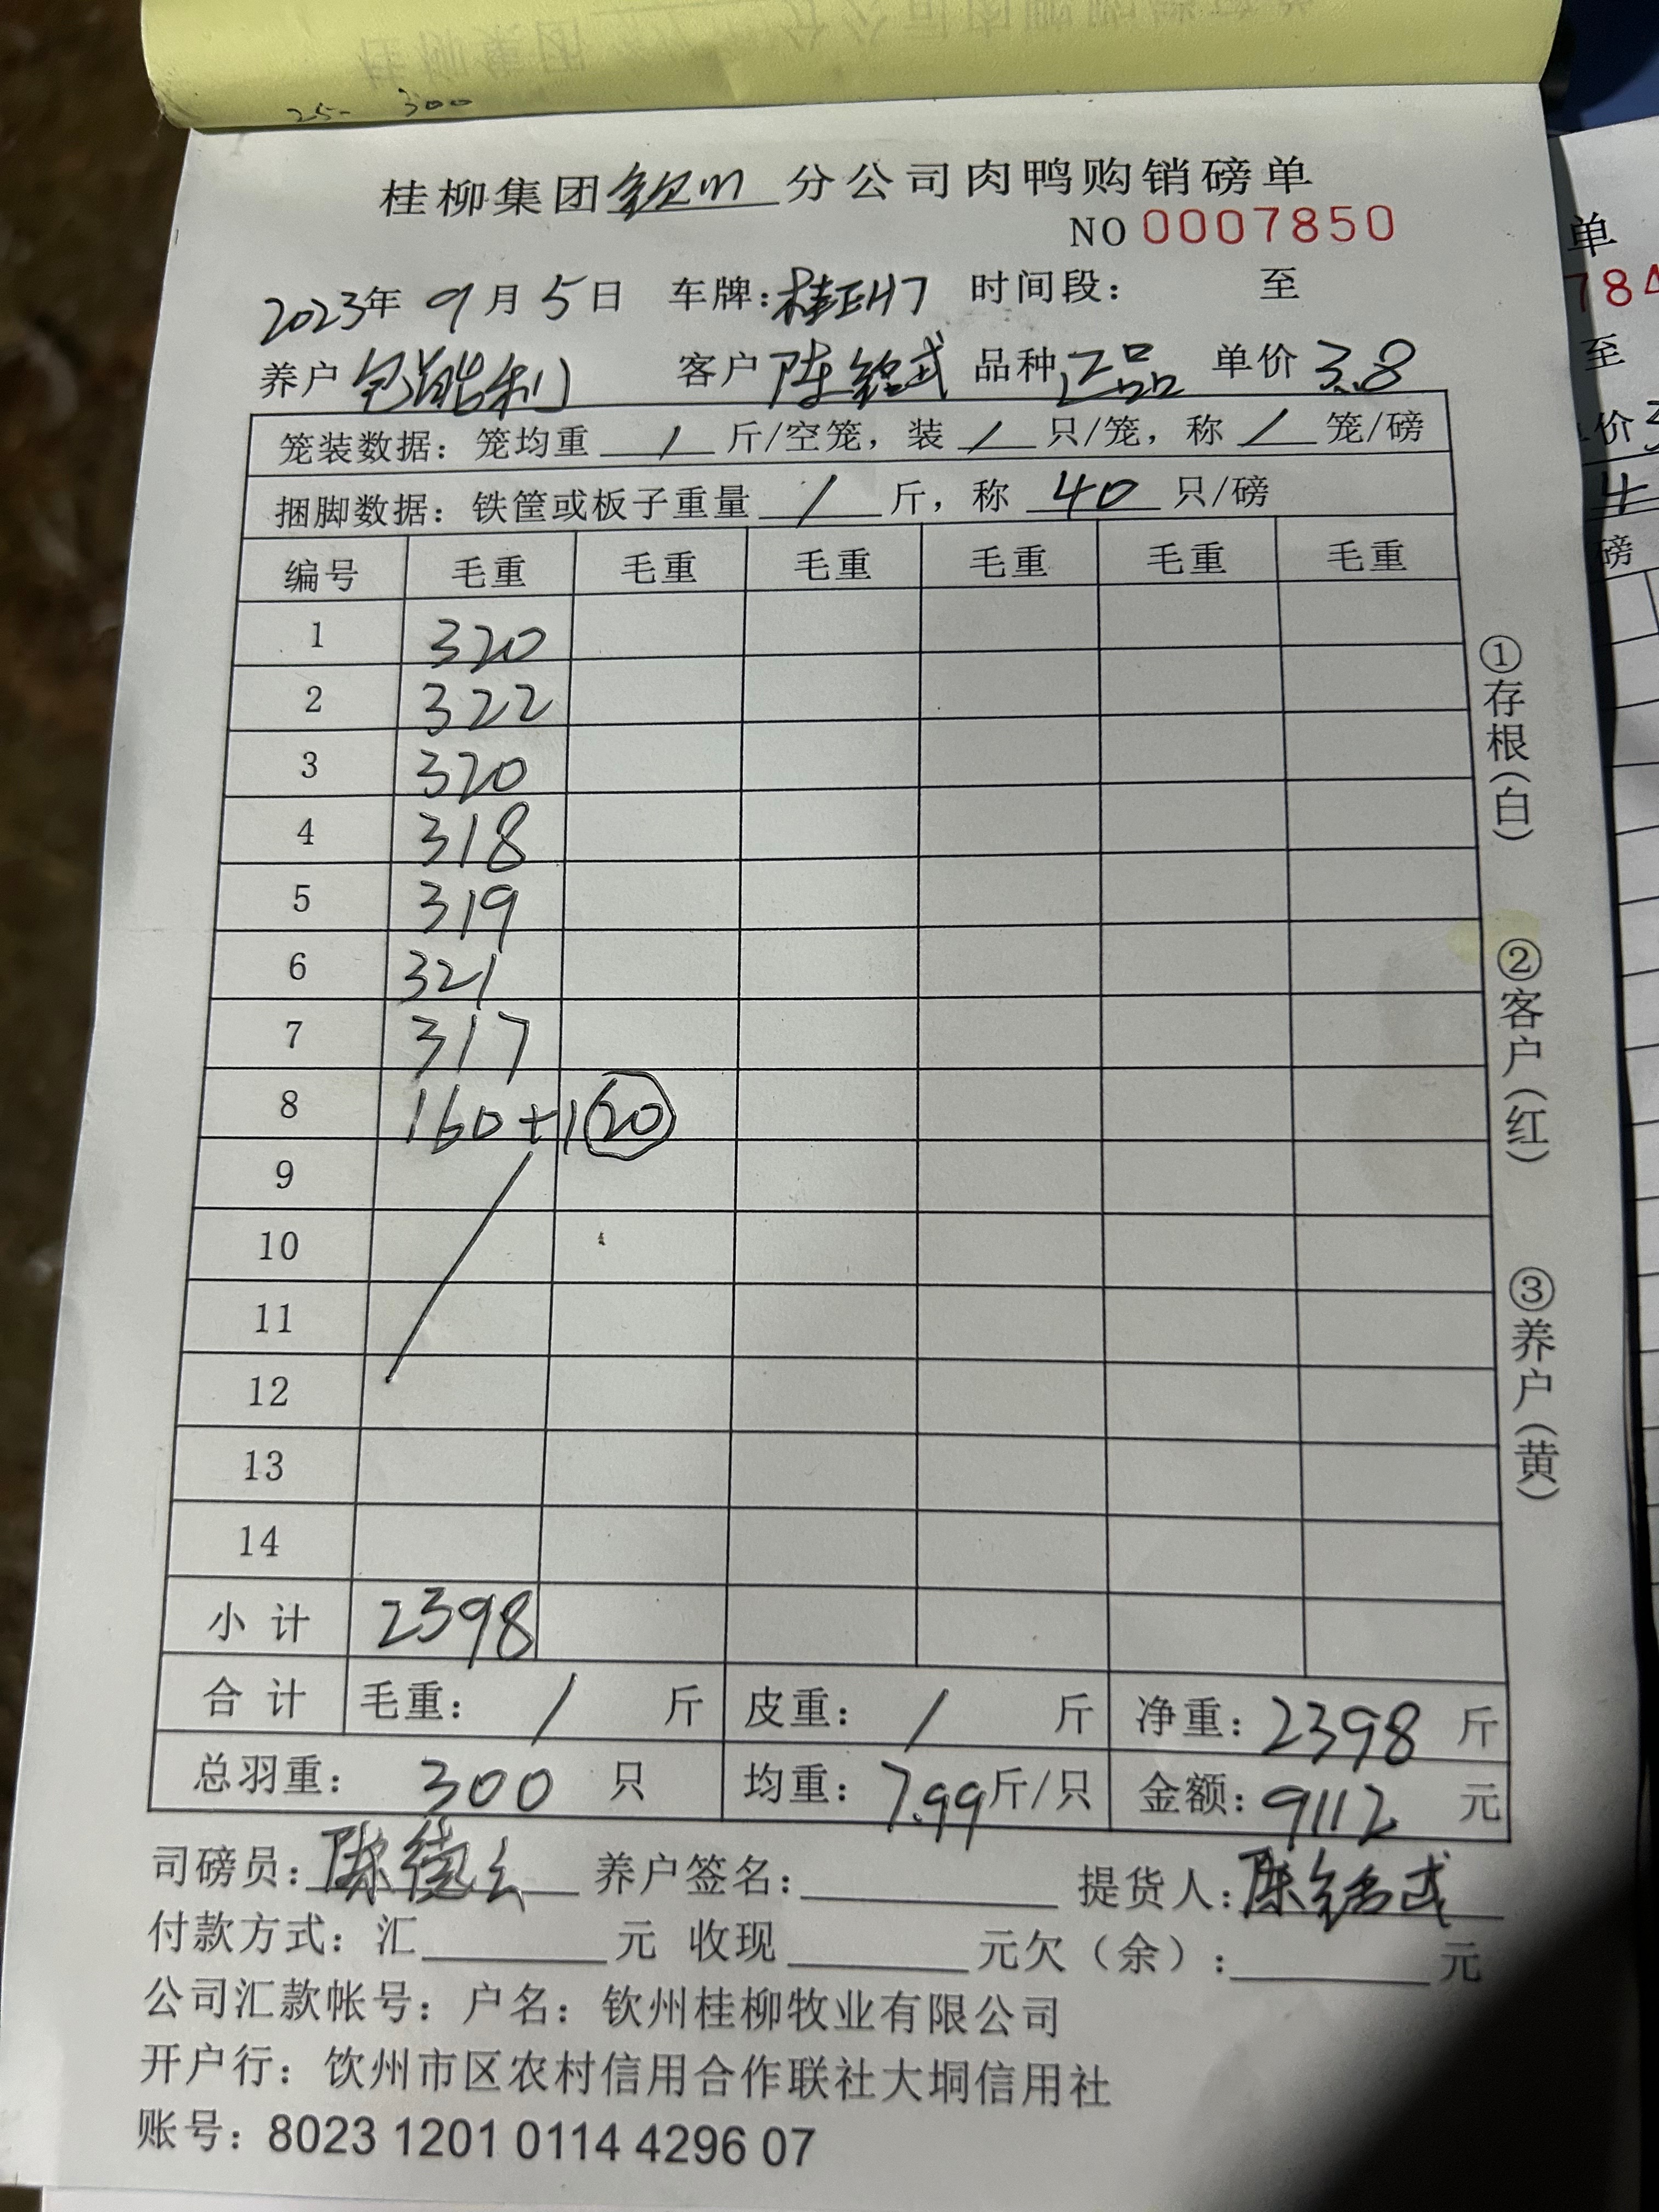 25- 300
桂柳集团钦州分公司肉鸭购销磅单
NO 0007850
2023年 9月5日 车牌: 时间段: 至
养户 包能利 客户 陈铭武 品种 正品 单价 3.8
笼装数据: 笼均重 / 斤/空笼, 装 / 只/笼, 称 / 笼/磅
捆脚数据: 铁筐或板子重量 / 斤, 称 40 只/磅
编号 毛重 毛重 毛重 毛重 毛重 毛重
1 320
2 322
3 320
4 318
5 319
6 321
7 317
8 160+1 20
9
10
11
12
13
14
小计 2398
合计 毛重: / 斤 皮重: / 斤 净重: 2398 斤
总羽重: 300 只 均重: 7.99斤/只 金额: 9112 元
司磅员: 养户签名: 提货人: 陈铭武
付款方式: 汇 元 收现 元欠(余): 元
公司汇款帐号: 户名: 钦州桂柳牧业有限公司
开户行: 饮州市区农村信用合作联社大垌信用社
账号: 8023 1201 0114 4296 07
①存根(白)
②客户(红)
③养户(黄)
单
784
至
价3
磅